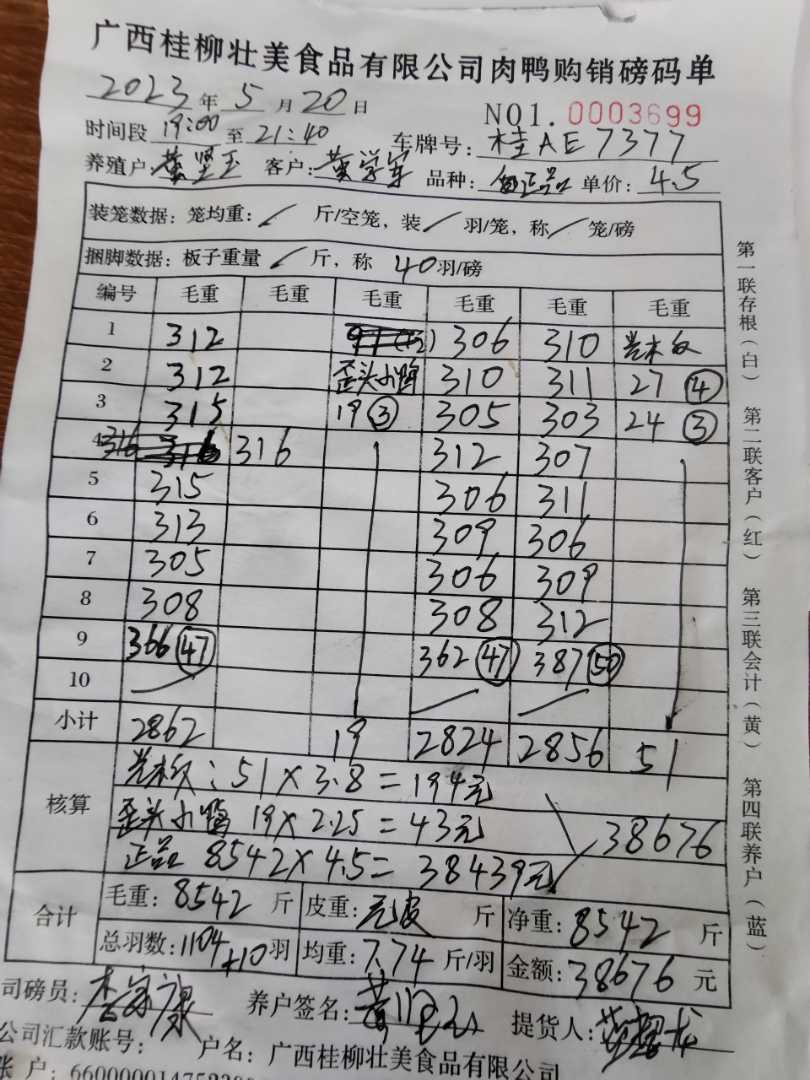 广西桂柳壮美食品有限公司肉鸭购销磅码单
2023年5月20日 NO1.0003699
时间段 19:00 至 21:40 车牌号: 桂AE7377
养殖户: 黄坚玉 客户: 黄学军 品种: 正品 单价: 4.5
装笼数据: 笼均重: / 斤/空笼, 装 / 羽/笼, 称 / 笼/磅
捆脚数据: 板子重量 / 斤, 称 40羽/磅
编号 毛重 毛重 毛重 毛重 毛重 毛重
1 312 306 310
2 312 歪头小鸭 310 311 27 ④
3 315 19 ③ 305 303 24 ③
4 316 316 312 307
5 315 306 311
6 313 309 306
7 305 306 309
8 308 308 312
9 366 ㊼ 362 ㊼ 387 ㊿
10
小计 2862 19 2824 2856 51
核算
51×3.8=194元
歪头小鸭 19×2.25=43元 38676
正品 8542×4.5=38439元
合计 毛重: 8542 斤 皮重: 斤 净重: 8542 斤
总羽数: 1104+10羽 均重: 7.74 斤/羽 金额: 38676 元
司磅员: 养户签名: 提货人:
公司汇款账号: 户名: 广西桂柳壮美食品有限公司
账 户: 660000014752
第一联存根(白) 第二联客户(红) 第三联会计(黄) 第四联养户(蓝)